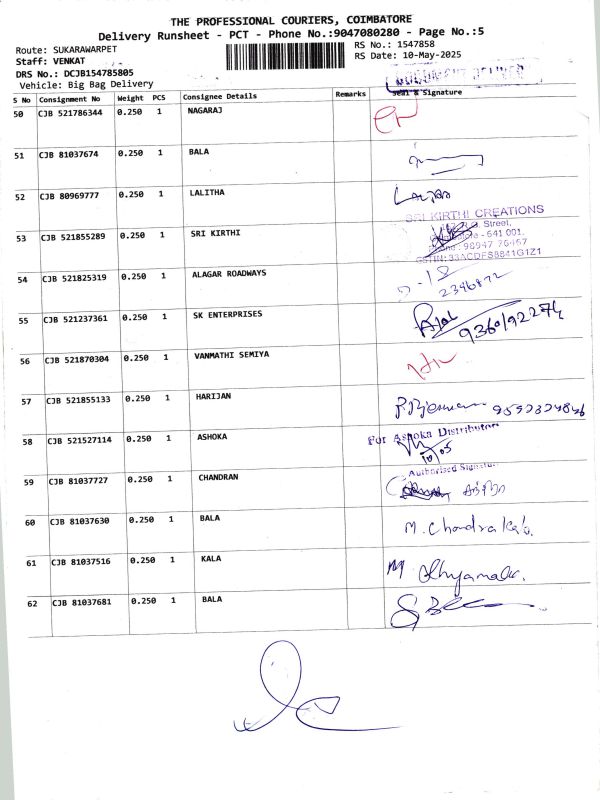 THE PROFESSIONAL COURIERS, COIMBATORE
Delivery Runsheet - PCT - Phone No.:9047080280 - Page No.:5
Route: SUKARAWARPET
RS No.: 1547858
Staff: VENKAT
RS Date: 10-May-2025
DRS No.: DCJB154785805
Vehicle: Big Bag Delivery
S No Consignment No Weight PCS Consignee Details Remarks Seal & Signature
50 CJB 521786344 0.250 1 NAGARAJ
51 CJB 81037674 0.250 1 BALA
52 CJB 80969777 0.250 1 LALITHA
SRI KIRTHI CREATIONS
53 CJB 521855289 0.250 1 SRI KIRTHI
Street,
- 641 001.
54 CJB 521825319 0.250 1 ALAGAR ROADWAYS
55 CJB 521237361 0.250 1 SK ENTERPRISES
56 CJB 521870304 0.250 1 VANMATHI SEMIYA
57 CJB 521855133 0.250 1 HARIJAN
58 CJB 521527114 0.250 1 ASHOKA For Ashoka Distributors
Authorised Signatory
59 CJB 81037727 0.250 1 CHANDRAN
60 CJB 81037630 0.250 1 BALA M. Chandrakala.
61 CJB 81037516 0.250 1 KALA
62 CJB 81037681 0.250 1 BALA